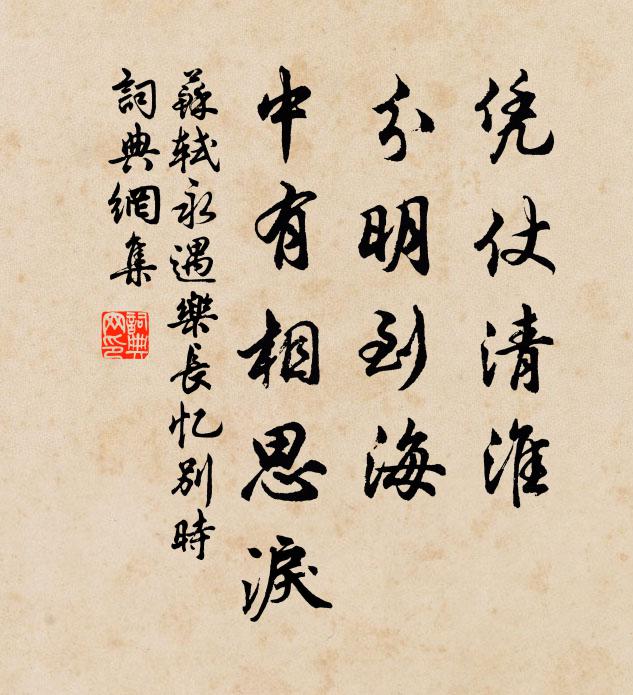 凭仗清淮
分明到海
中有相思淚
蘇軾永遇樂長忆別時
詞典網集
詞典
网印